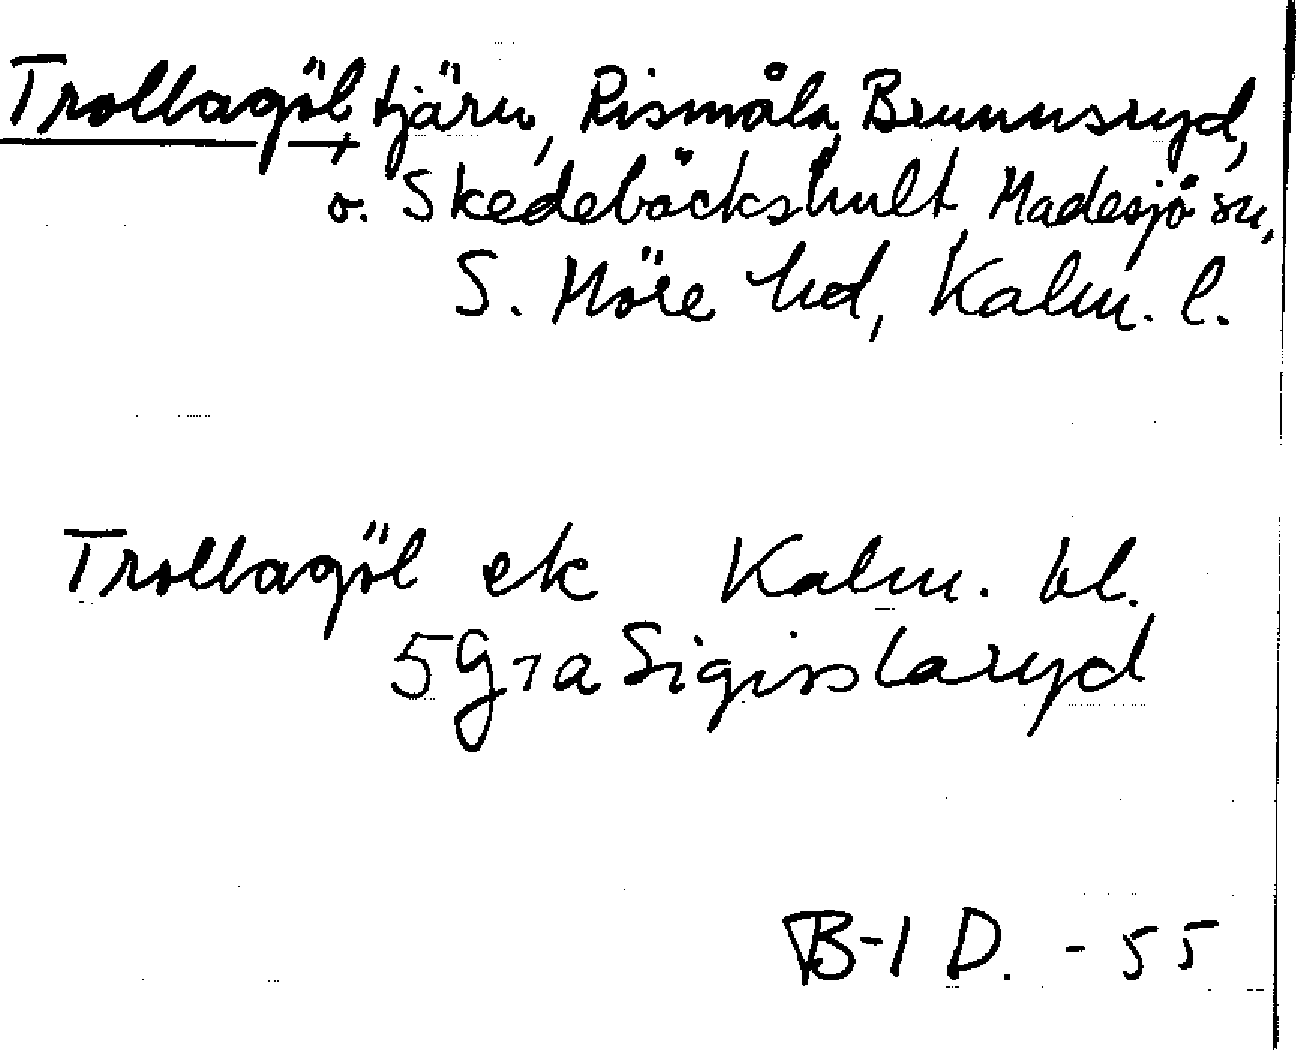 Trollagöl, tjärn, Rismåla, Brunnsryd,
o. Skedebäckshult, Madesjö sn,
S. Möre hd, Kalm. l.
Trollagöl ek Kalm. bl.
5 G 7 a Sigisslaryd
B-I D. - 55